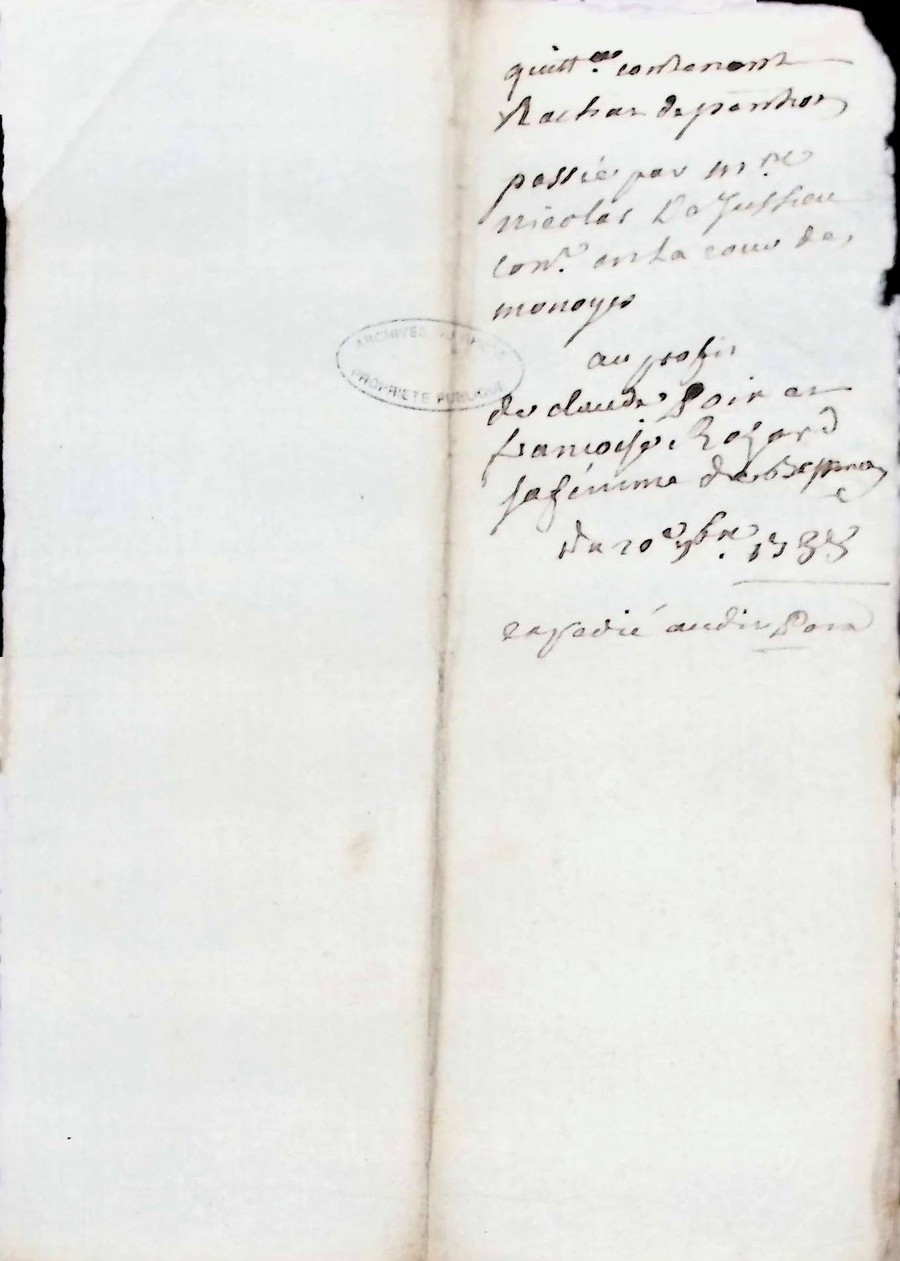 quitt.ce contenant
Rachat de pention
passée par m.re
nicolas De Jussieu
con.er en la cour des
monoyes
au profit
de claude Poix et
francoise Rozard
sa femme de
du 20e 9bre. 1788
expedié audit Poix
ARCHIVES DU RHÔNE
PROPRIÉTÉ PUBLIQUE